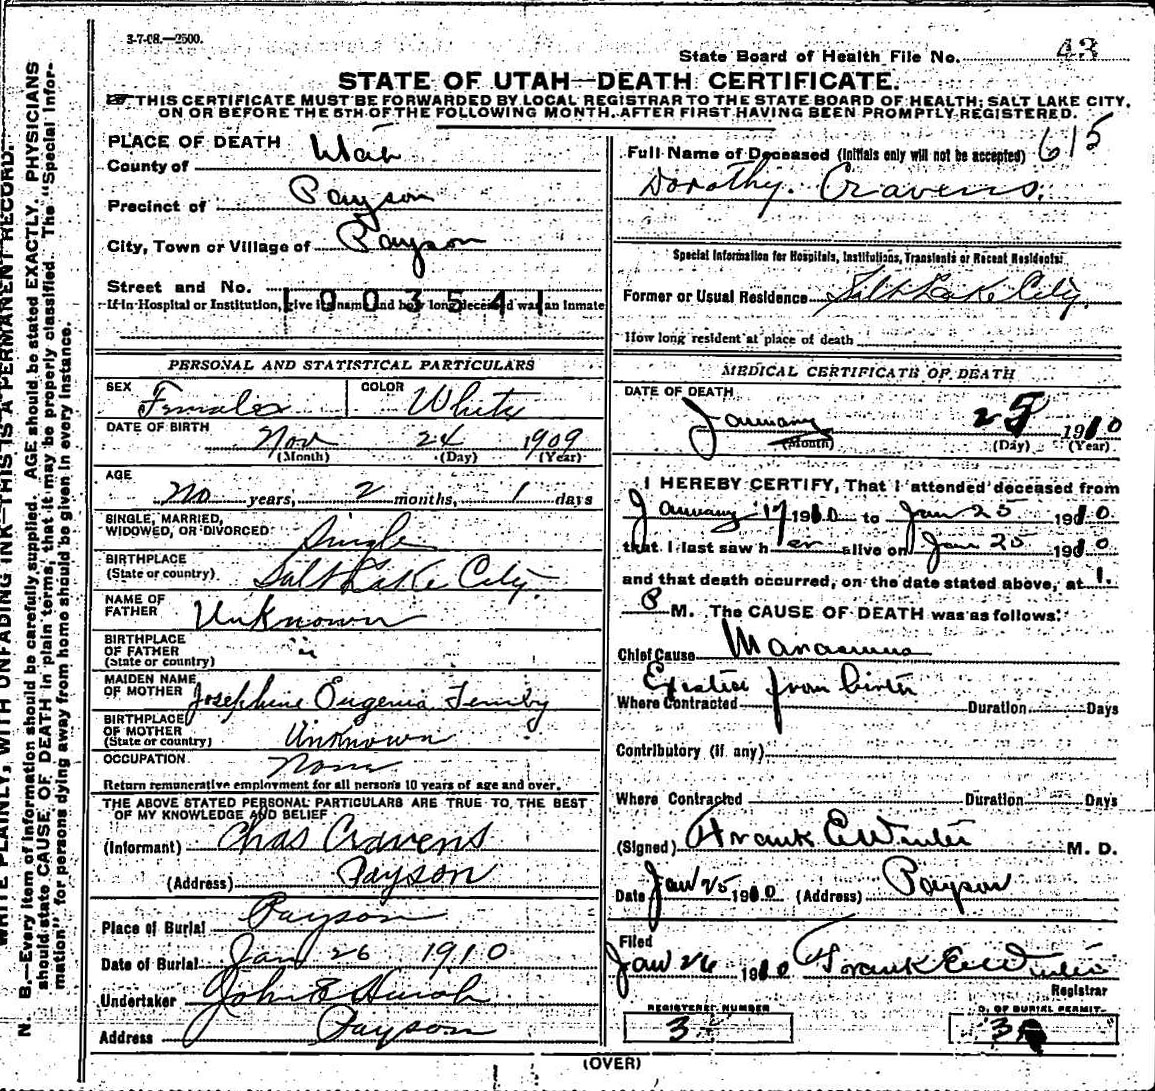 3-7-08.—2500.
State Board of Health File No. 43
STATE OF UTAH—DEATH CERTIFICATE.
☞THIS CERTIFICATE MUST BE FORWARDED BY LOCAL REGISTRAR TO THE STATE BOARD OF HEALTH; SALT LAKE CITY,
ON OR BEFORE THE 5TH OF THE FOLLOWING MONTH, AFTER FIRST HAVING BEEN PROMPTLY REGISTERED.
N. B.—Every item of information should be carefully supplied. AGE should be stated EXACTLY. PHYSICIANS
should state CAUSE OF DEATH in plain terms, that it may be properly classified. The "Special Infor-
mation" for persons dying away from home should be given in every instance.
WRITE PLAINLY, WITH UNFADING INK—THIS IS A PERMANENT RECORD.
PLACE OF DEATH
County of Utah
Precinct of Payson
City, Town or Village of Payson
Street and No.
1003541
If in Hospital or Institution, give its name and how long deceased was an inmate
PERSONAL AND STATISTICAL PARTICULARS
SEX Female
COLOR White
DATE OF BIRTH Nov 24 1909
(Month) (Day) (Year)
AGE
No years, 2 months, 1 days
SINGLE, MARRIED,
WIDOWED, OR DIVORCED Single
BIRTHPLACE
(State or country) Salt Lake City.
NAME OF
FATHER Unknown
BIRTHPLACE
OF FATHER "
(State or country)
MAIDEN NAME
OF MOTHER Josephine Eugenia
BIRTHPLACE
OF MOTHER
(State or country) Unknown
OCCUPATION None
Return remunerative employment for all persons 10 years of age and over.
THE ABOVE STATED PERSONAL PARTICULARS ARE TRUE TO THE BEST
OF MY KNOWLEDGE AND BELIEF
(Informant) Chas Cravens
(Address) Payson
Place of Burial Payson
Date of Burial Jan 26 1910
Undertaker John E
Address Payson
615
Full Name of Deceased (Initials only will not be accepted)
Dorothy. Cravens.
Special Information for Hospitals, Institutions, Transients or Recent Residents:
Former or Usual Residence Salt Lake City,
How long resident at place of death
MEDICAL CERTIFICATE OF DEATH
DATE OF DEATH
January 25 1910
(Month) (Day) (Year)
I HEREBY CERTIFY, That I attended deceased from
January 17 1910 to Jan 25 1910
that I last saw her alive on Jan 25 1910
and that death occurred, on the date stated above, at 1.
P M. The CAUSE OF DEATH was as follows:
Chief Cause Marasmus
Existed from birth
Where Contracted Duration Days
Contributory (if any)
Where Contracted Duration Days
(Signed) Frank E Winter M. D.
Date Jan 25 1910 (Address) Payson
Filed
Jan 26 1910 Frank E Winter
Registrar
REGISTERED NUMBER
3
O. OF BURIAL PERMIT
3
(OVER)